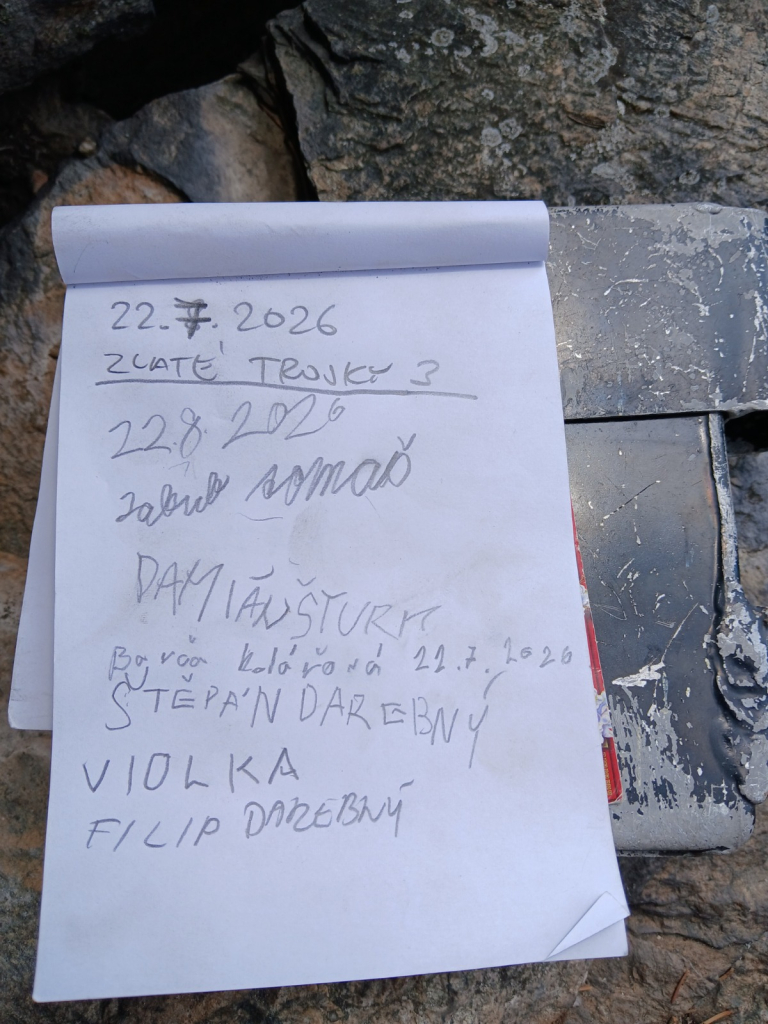 22.7.2026
ZLATÉ TROJKY 3
22.8.2026
Jakub Tomáš
DAMIÁN ŠTURM
Barča Kolářová 22.7.2026
ŠTĚPÁN DAREBNÝ
VIOLKA
FILIP DAREBNÝ